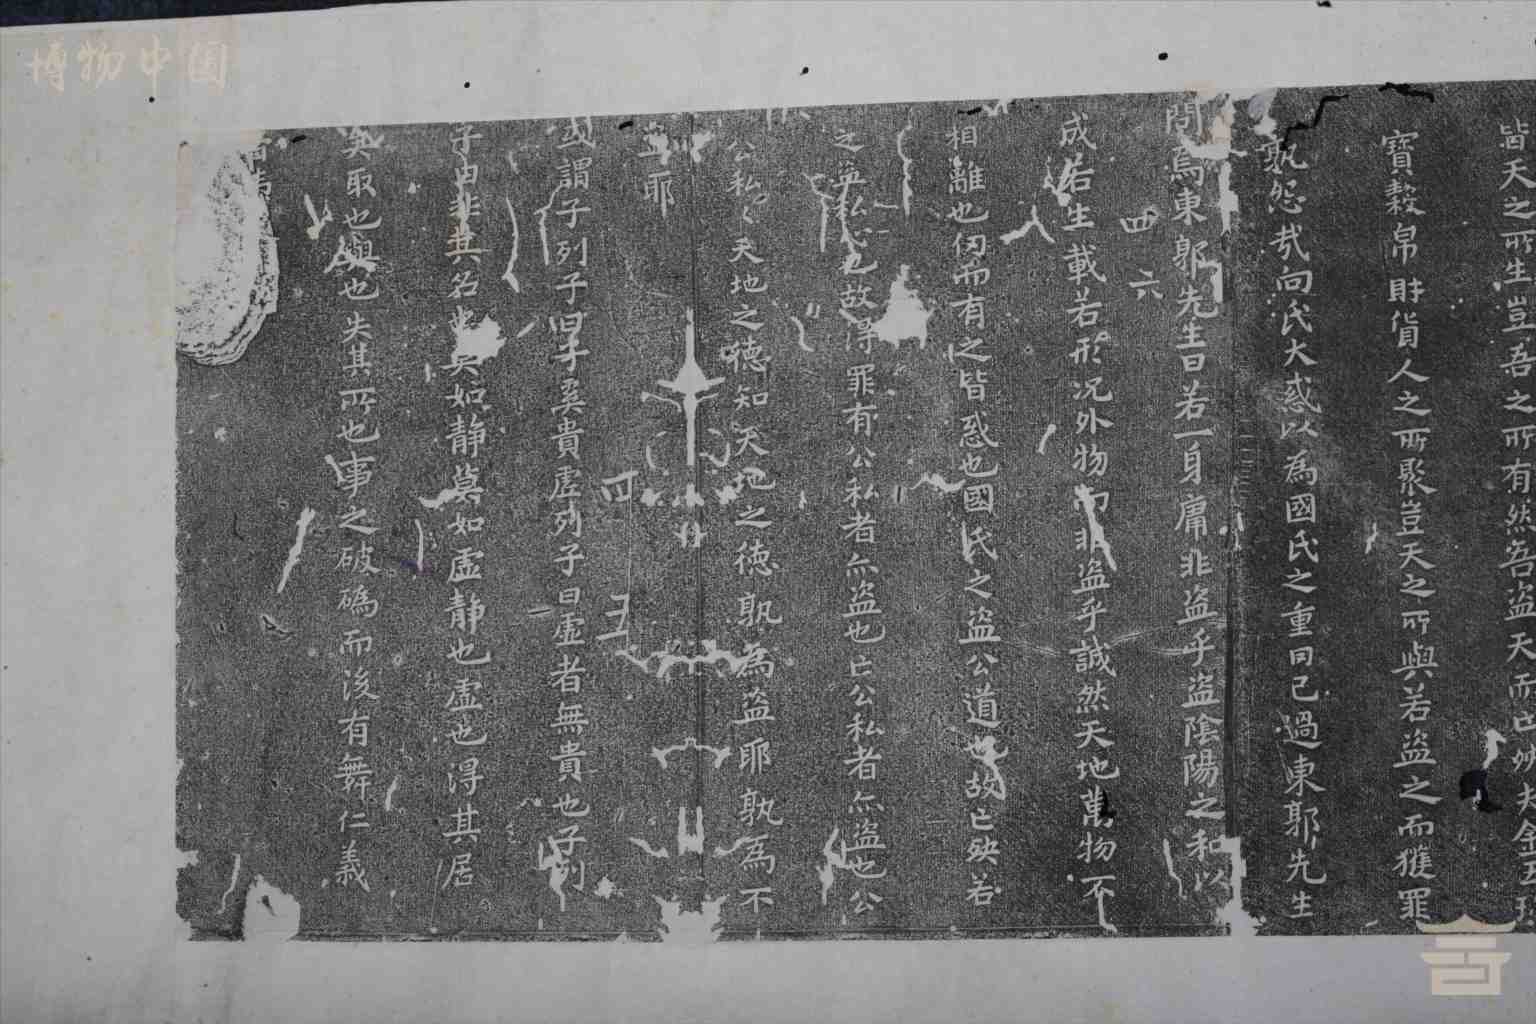 皆天之所生豈吾之所有然吾盗天而亡殃夫金玉珎
寶穀帛財貨人之所聚豈天之所與若盗之而獲罪
孰怨哉向氏大惑以為國氏之重罔己過東郭先生
問焉東郭先生曰若一身庸非盗乎盗陰陽之和以
四六
成若生載若形况外物而非盗乎誠然天地萬物不
相離也仞而有之皆惑也國氏之盗公道也故亡殃若
之盗私心也故淂罪有公私者亦盗也亡公私者亦盗也公
公私〻天地之德知天地之德孰為盗耶孰為不
盗耶
四五
或謂子列子曰子奚貴虚列子曰虚者無貴也子列
子曰非其名也莫如静莫如虚静也虚也淂其居
矣取也與也失其所也事之破䃣而後有舞仁義
博物中国